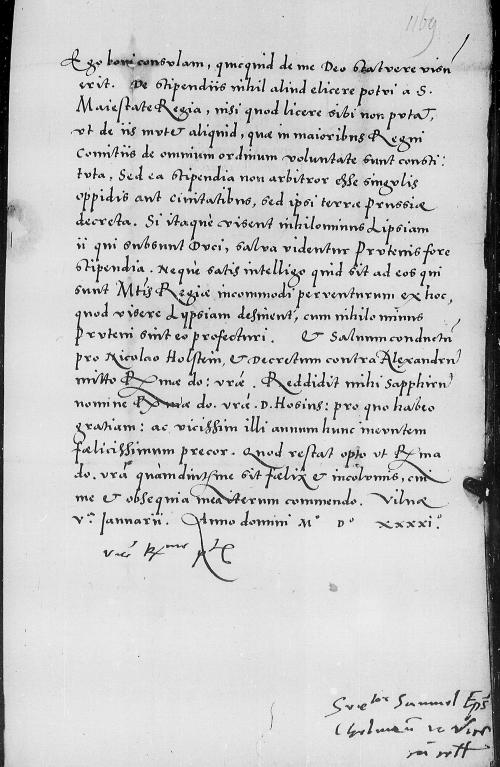 1169
Ego boni consulam, quicquid de me Deo statuere visū
erit. De stipendiis nihil aliud elicere potui a S.
Maiestate Regia, nisi quod licere sibi non putat,
ut de iis mutet aliquid, quae in maioribus Regni
Comitiis de omnium ordinum voluntate sunt consti:
tuta, Sed ea stipendia non arbitror esse singulis
oppidis aut civitatibus, sed ipsi terrae Prussiae
decreta. Si itaque visent nihilominus Lipsiam
ii qui subsunt Duci, salva videntur Prutenis fore
stipendia. Neque satis intelligo quid sit ad eos qui
sunt Mtis Regiae incommodi perventurum ex hoc,
quod visere Lypsiam desinent, cum nihilo minus
Pruteni sint eo profecturi. Et Salvum conductū
pro Nicolao Holstein, et Decretum contra Alexandrū
mitto Rx mae do: vrae. Reddidit mihi Sapphirū
nomine Rx mae do. vrae. D. Hosius: pro quo habeo
gratiam: ac vicissim illi annum hunc ineuntem
faelicissimum precor. Quod restat opto ut Rx ma
do. vra quam diutissime sit faelix et incolumis, cui
me et obsequia mea iterum commendo. Vilnae
v.ª Januarii. Anno domini M.º D.º XXXXI.º
Samuel Eps